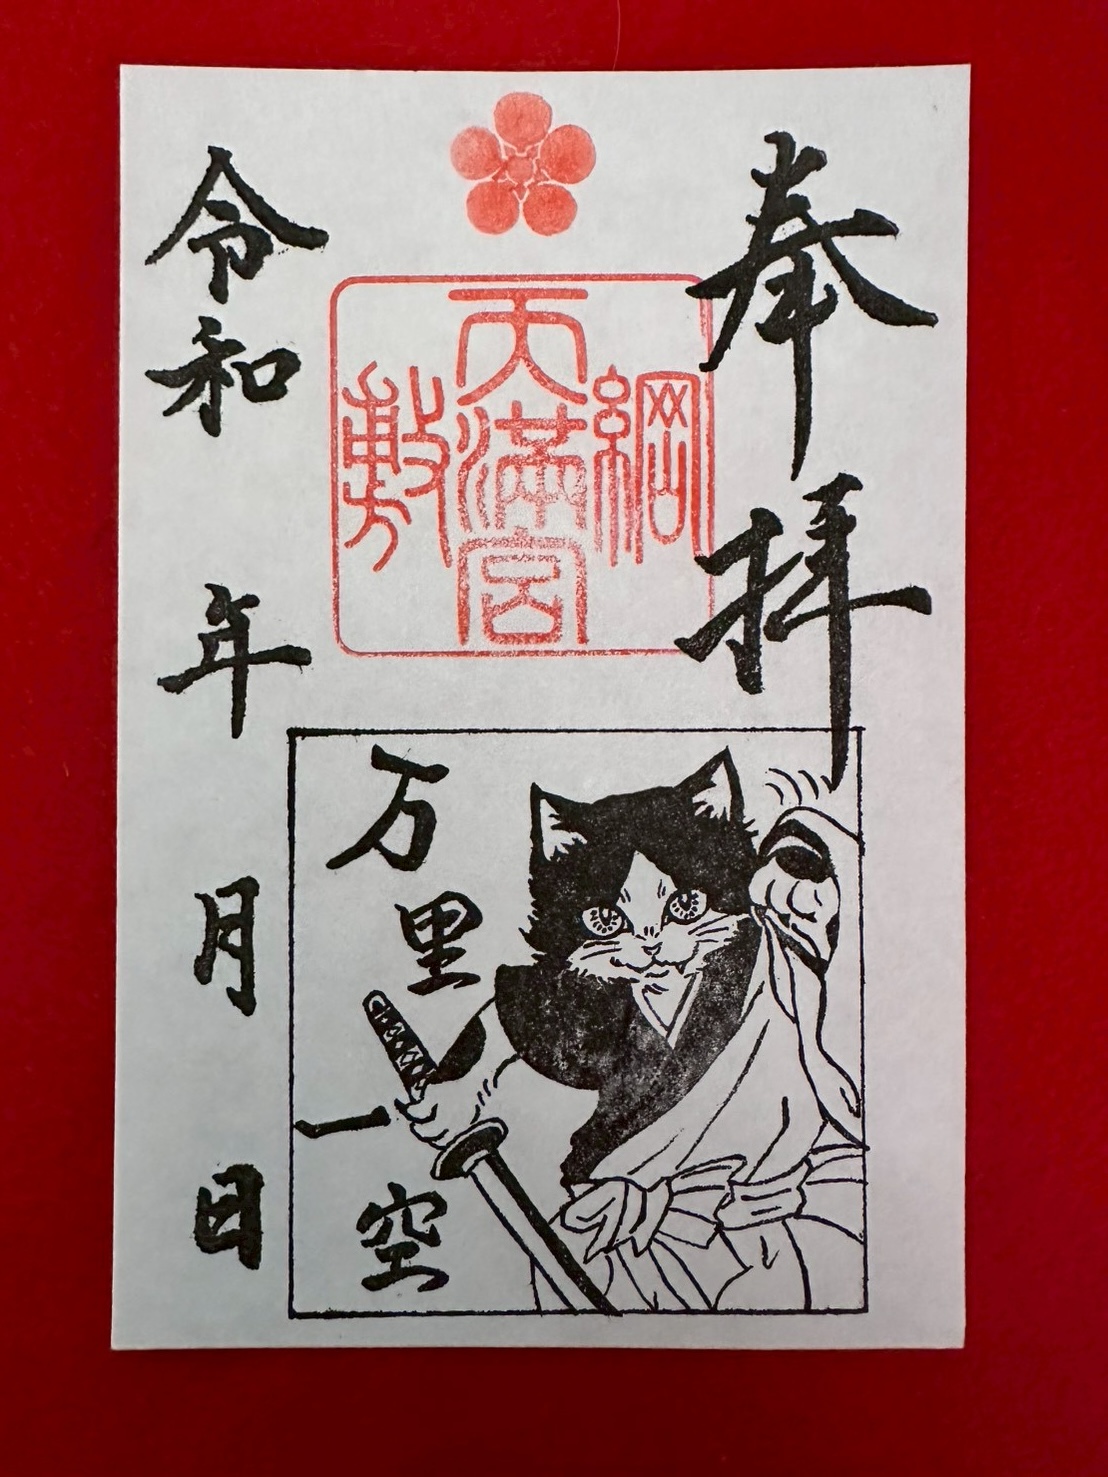 奉拝
綱敷
天満宮
万里一空
令和 年 月 日